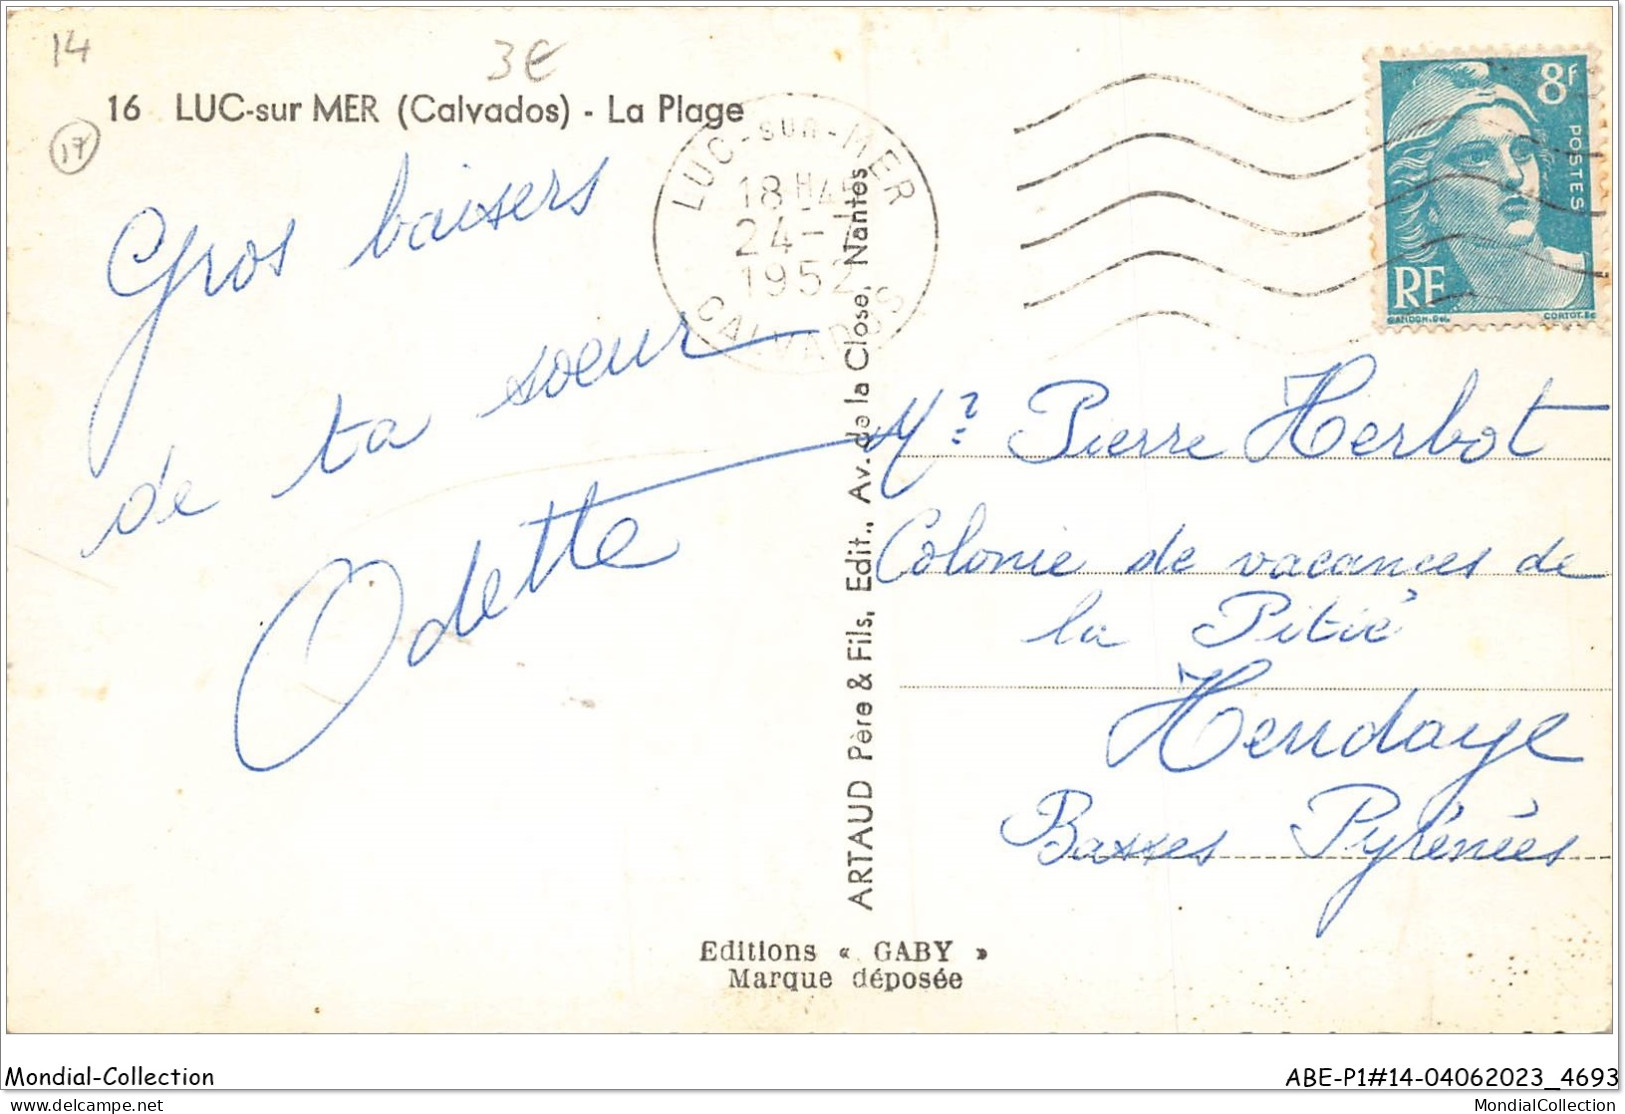 14
3€
16 LUC-sur MER (Calvados) - La Plage
17
Gros baisers
de ta soeur
Odette
LUC-sur-MER
18H45
24-7
1952
CALVADOS
8f
POSTES
RF
GANDON.Del.
CORTOT.Sc
ARTAUD Père & Fils, Edit., Av. de la Close, Nantes
Mr Pierre Herbot
Colonie de vacances de
la Pitié
Hendaye
Basses Pyrénées
Editions « GABY »
Marque déposée
Mondial-Collection
ABE-P1#14-04062023_4693
delcampe.net
MondialCollection